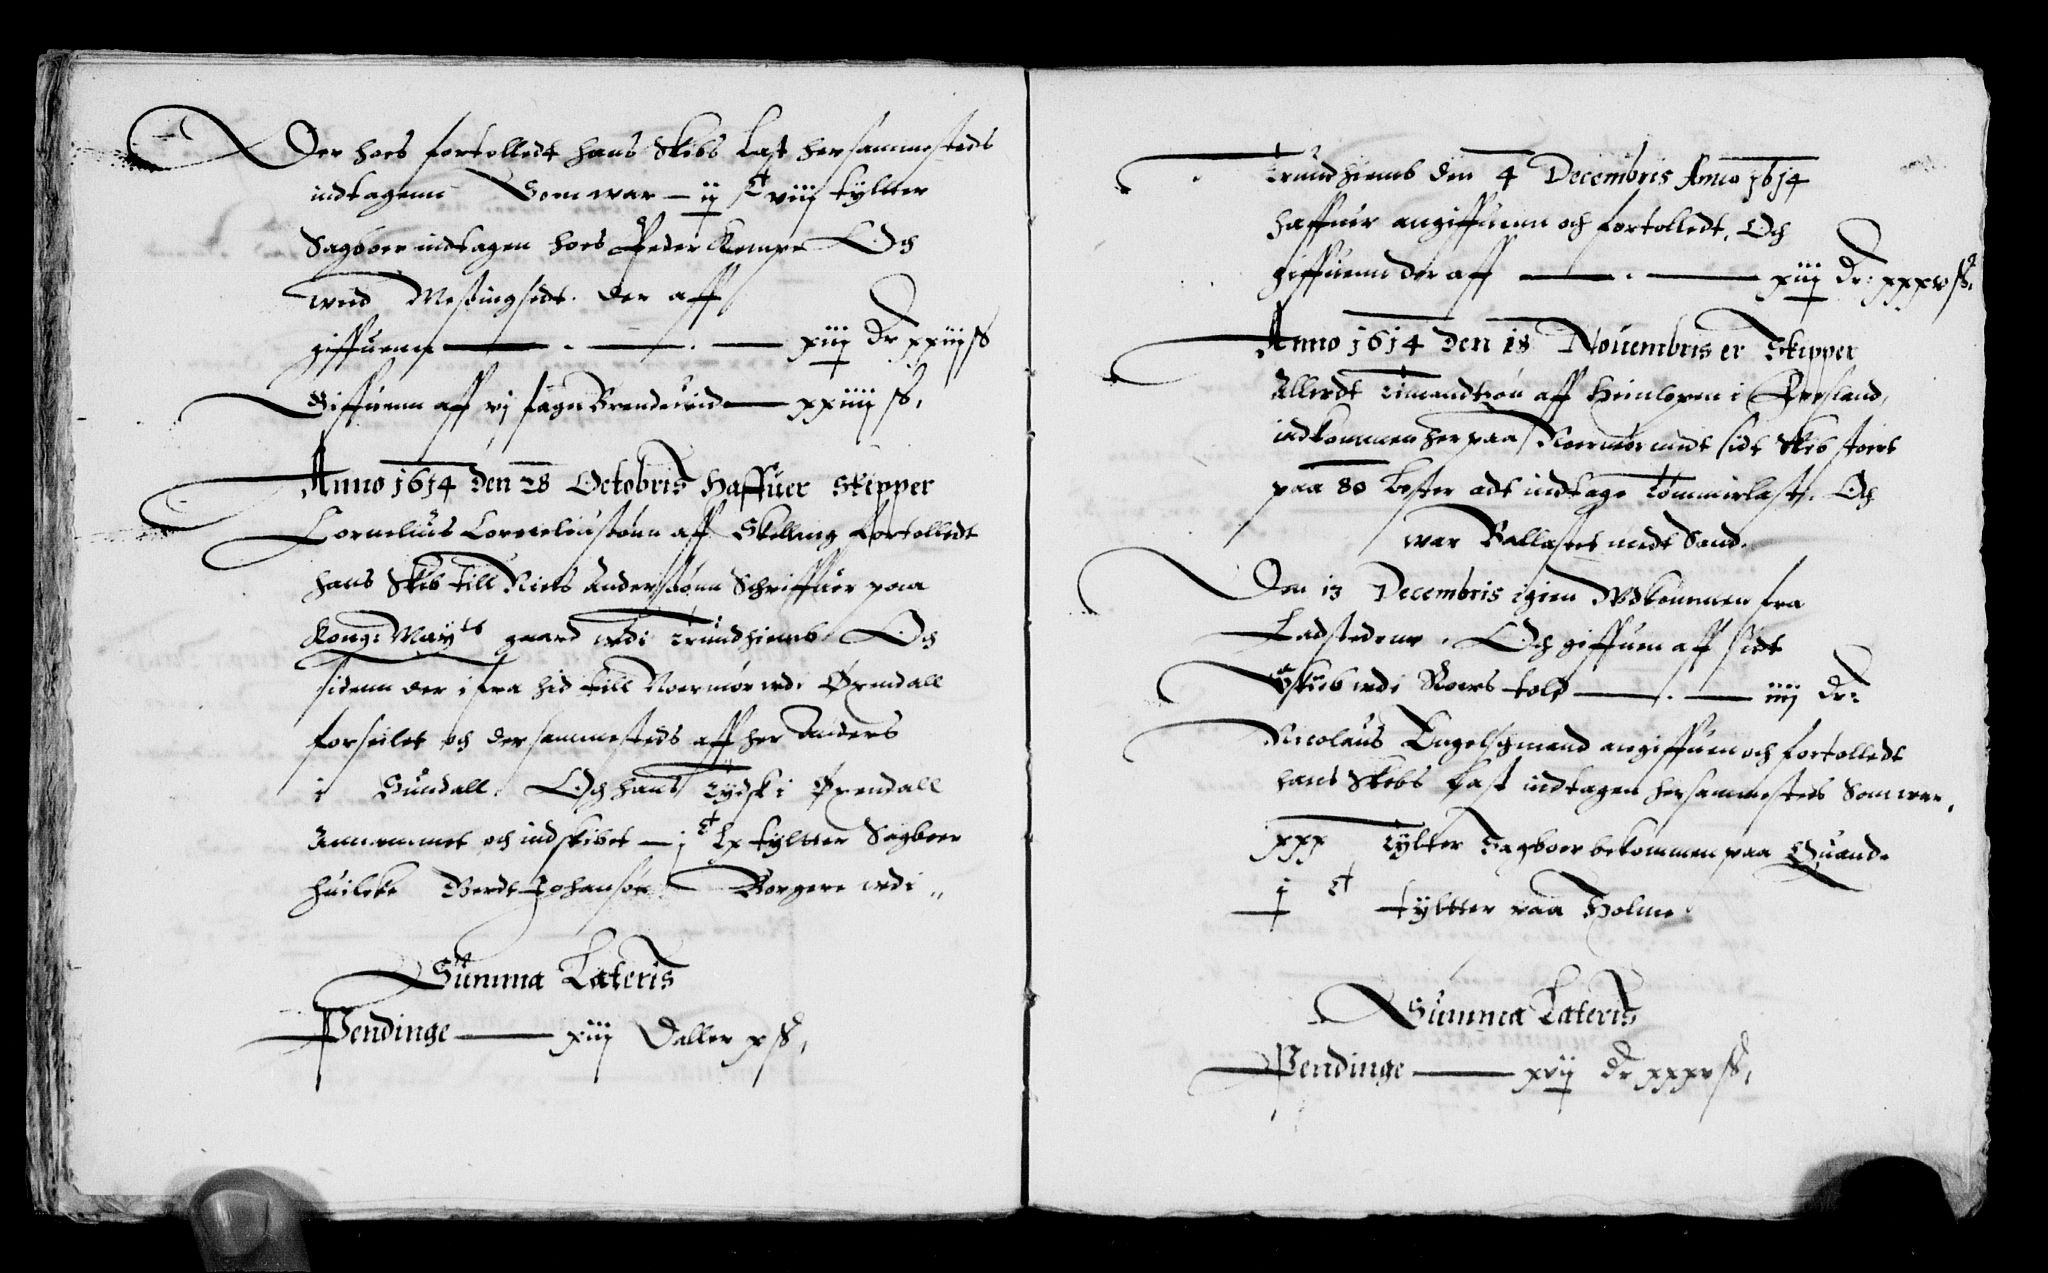 Der hoes fortolledt hans Skibs Last hersammesteds
indtagenn Som war — ij Ct viij tyltter
Sagboer indtagen hoes Peder Kempe Och
wed Mestingsedt. der aff
giffuenn — xiij dr xxiij ß
Giffuenn aff vj fagn Brendeuid — xxiiij ß,
Anno 1614 den 28 Octobris Haffuer Skipper
Cornelius Corneliussønn aff Skelling fortolledt
hans Skib till Niels Anderssønn Schriffuer paa
Kong: Mayts gaard wdi Trundhiemb Och
sidenn der ifra hid till Noermør wdi Øxendall
forseilet och dersammesteds aff her Anders
i Sundall, Och hans Tydsk i Øxendall
Annammet och indskibet — j Ct lx tyltter Sagboer
huilcke Berdt Johansøn Borgere wdi ,,
Summa Lateris
Pendinge — xiij Daller x ß,
Trundhiemb den 4 Decembris Anno 1614
haffuer angiffuenn och fortolledt, Och
giffuenn der aff — xiij dr: xxxv ß,
Anno 1614 den 18 Nouembris er Skipper
Allerdt aff Heinlopen i Fresland,
indkommen her paa Noermør medt sidt Skib stoert
paa 80 Lester adt indtage Tømmerlast, Och
war Ballastet medt Sand.
Den 13 Decembris igien Wdkommen fra
Ladstedenn, Och giffuen aff sidt
Skib wdi Roers told — iiij dr:
Nicolaus Engelschmand angiffuen och fortolledt
hans Skibs Last indtagen hersammesteds Som war,
xxx Tylter Sagboer bekommen paa Quande
j Ct tyltter paa Holme
Summa Lateris
Pendinge — xvij dr xxxv ß,